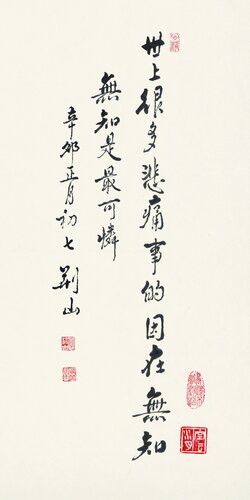 世上很多悲痛事的因在無知
無知是最可憐
辛卯正月初七 荆山